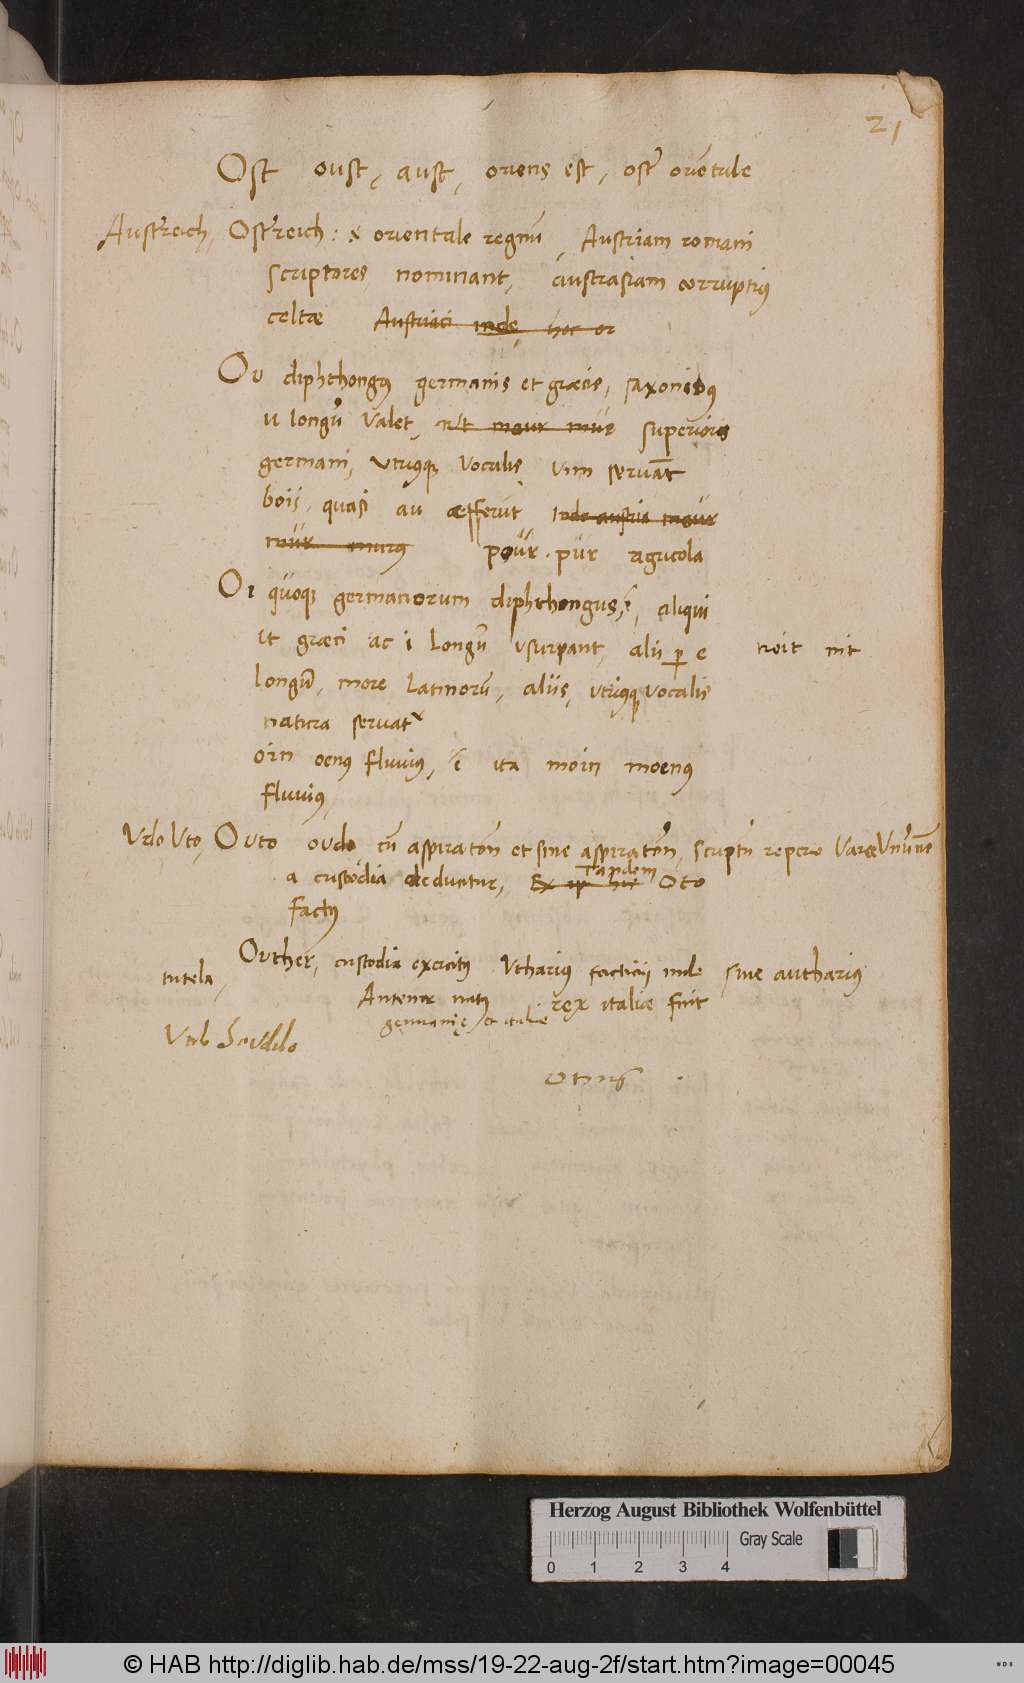 21
Ost oust, aust, oriens est, oster orientale
Austreich, Ostreich: orientale regnū, Austriam romani
scriptores nominant, austrasiam corruptius
celtæ Austriaci inde, hoc
Ou diphthongus germanis et græcis, saxonibus
u longū valet, superiores
germani, utriusque vocalis vim servant
boii, quasi au efferūt, inde austria maur
murus pour. pur agricola
Oi quoque germanorum diphthongus, aliqui
ut græci ac i longū usurpant, alii p e noit nit
longū, more latinorū, aliis, utriusque vocalis
natura servat
oin oenus fluvius, ita moin moenus
fluvius,
Udo Uto, Outo oudo cū aspiratōn et sine aspiratōn, reperio
a custodia deducitur, tandem Oto
factus
Outher, custodia exercitus Utharius inde sine autharius
tutela,
Antenor natus rex italiæ fuit
germanię et italiæ
Herzog August Bibliothek Wolfenbüttel
Gray Scale
0 1 2 3 4
© HAB http://diglib.hab.de/mss/19-22-aug-2f/start.htm?image=00045